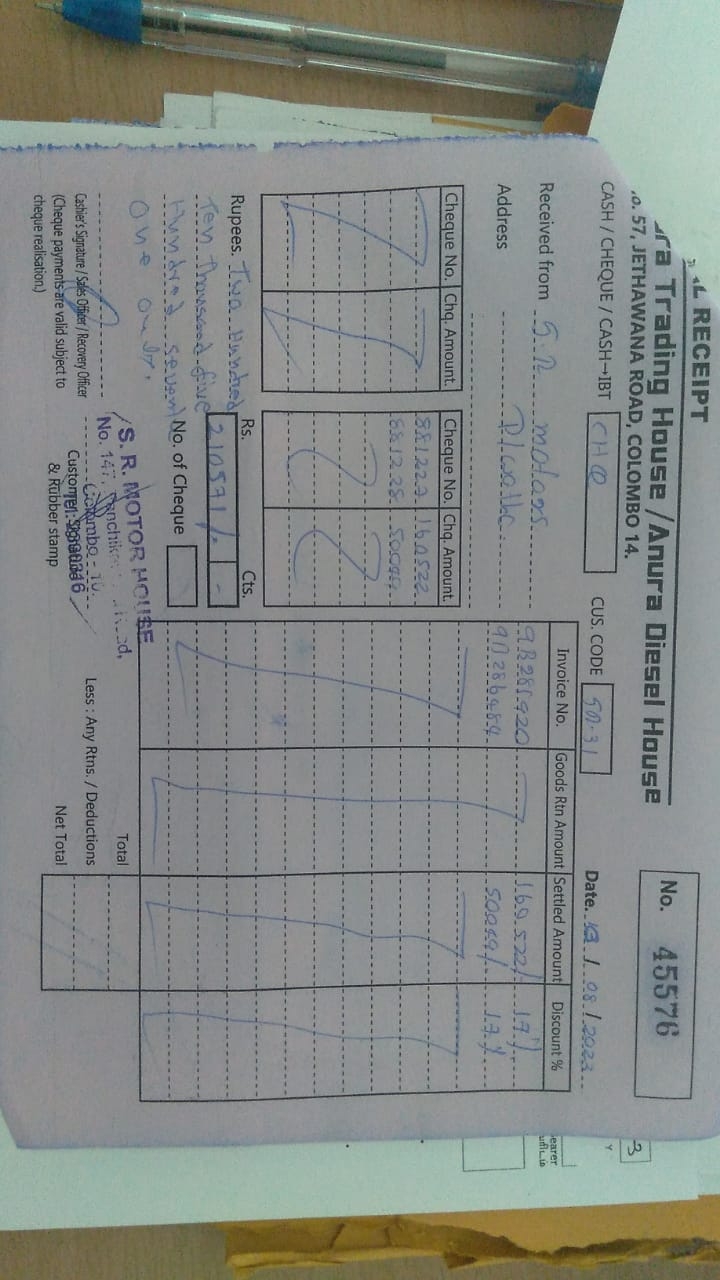 L RECEIPT
ura Trading House /Anura Diesel House
o. 57, JETHAWANA ROAD, COLOMBO 14.
No. 45576
CASH / CHEQUE / CASH→IBT CHQ
CUS. CODE
Date 08 / 2023
Received from S.R motors
Address
Cheque No. Chq. Amount. Cheque No. Chq. Amount.
881227 160522
881228 50049
Invoice No. Goods Rtn Amount Settled Amount Discount %
160522/- 17%
50049/- 17%
Rupees. Two Hundred
Ten thousand five
Hundred seventy
one only.
Rs. Cts.
210571/- -
No. of Cheque
Total
Less : Any Rtns. / Deductions
Net Total
S. R. MOTOR HOUSE
No. 147,
Colombo - 10.
Customer Signature
& Rubber stamp
Cashier's Signature / Sales Officer / Recovery Officer
(Cheque payments are valid subject to
cheque realisation.)
3